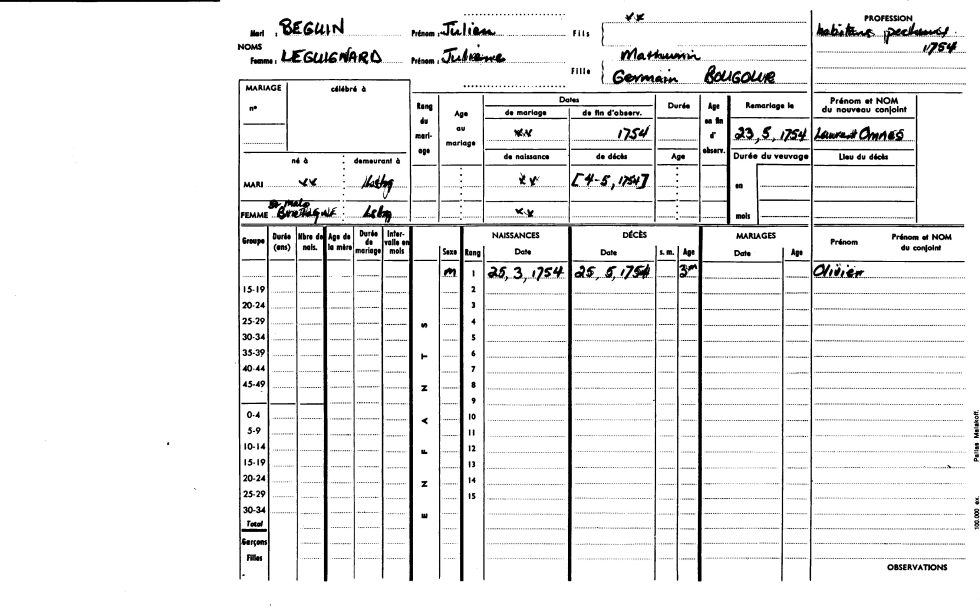 xx
PROFESSION
Mari : BEGUIN Prénom : Julien Fils habitans pecheurs
NOMS 1754
Femme : LEGUIGNARD Prénom : Julienne Mathurin
Fille Germain BOUGOUR
MARIAGE célébré à
n°
Rang du mariage Age au mariage Dates Durée Age en fin d'observ. Remariage le Prénom et NOM du nouveau conjoint
de mariage de fin d'observ.
xx 1754 23, 5, 1754 Laurent OMNES
né à demeurant à de naissance de décès Age Durée du veuvage Lieu du décès
MARI xx xx [4-5, 1754] en
St malo
FEMME BRETAGNE xx mois
Groupe Durée (ans) Nbre de nais. Age de la mère Durée de mariage Intervalle en mois Sexe Rang NAISSANCES Date DÉCÈS Date s. m. Age MARIAGES Date Age Prénom Prénom et NOM du conjoint
m 1 25, 3, 1754 25, 5, 1754 3m Olivier
15-19 2
20-24 3
25-29 S 4
30-34 5
35-39 T 6
40-44 7
45-49 N 8
9
0-4 A 10
5-9 11
10-14 F 12
15-19 13
20-24 N 14
25-29 15
30-34 E
Total
Garçons
Filles
OBSERVATIONS
100.000 ex. Parlies Malakoff.